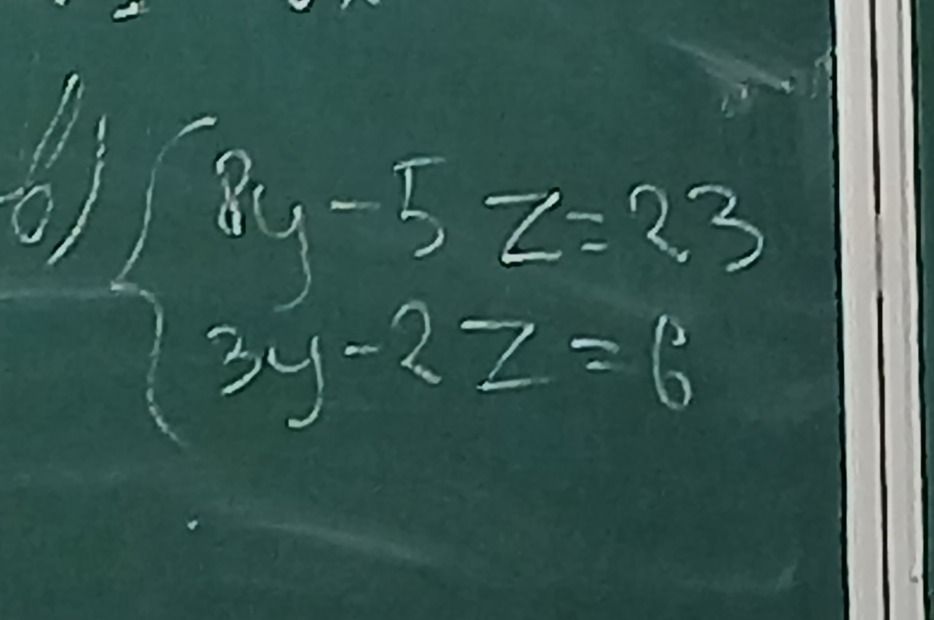 б) { 8y - 5z = 23
3y - 2z = 6